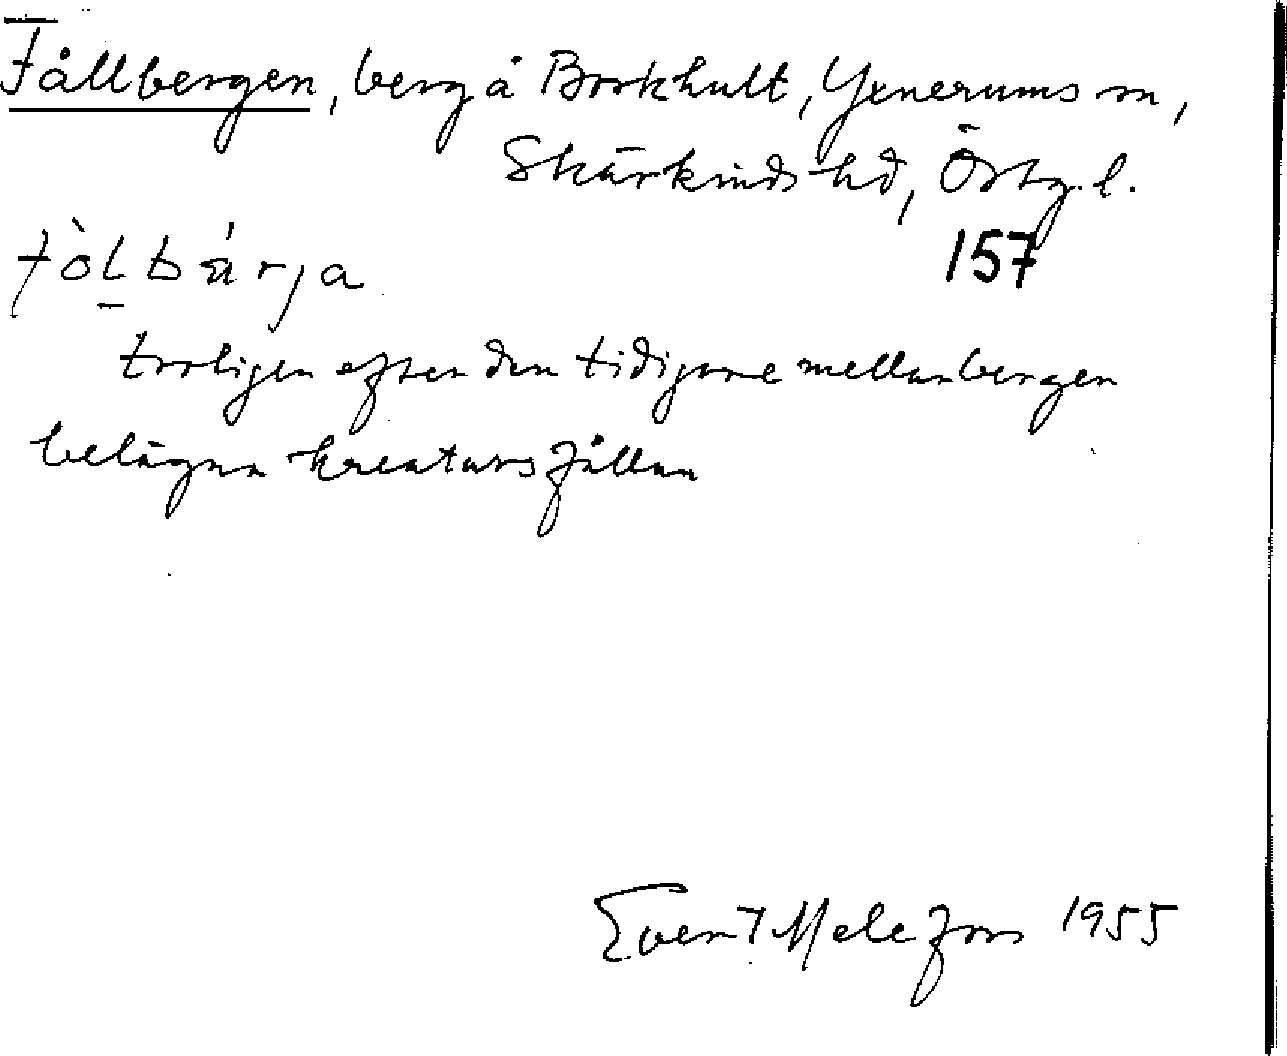 Fållbergen, berg å Borkhult, Yxnerums sn,
Skärkinds hd, Östg. l.
fòḷbárja 157
troligen efter den tidigare mellan bergen
belägna kreatursfållan
Evert Melefors 1955